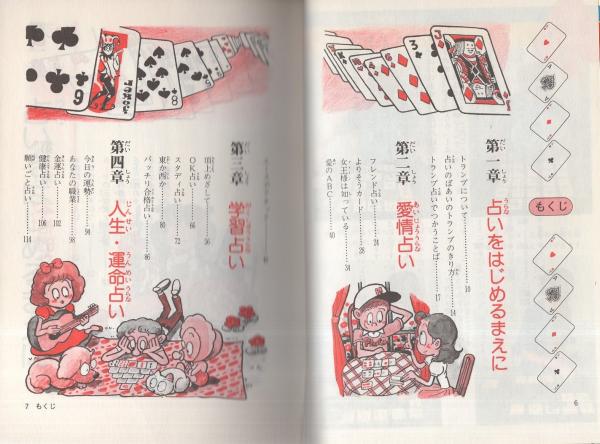 もくじ
第一章 占いをはじめるまえに
トランプについて 10
占いのばあいのトランプのきり方 14
トランプ占いでつかうことば 17
第二章 愛情占い
フレンド占い 24
よりそうカード 28
女王様は知っている 34
愛のABC 40
6
第三章 学習占い
頂上めざして 56
OK占い 66
スタディ占い 72
東か西か 80
バッチリ合格占い 86
第四章 人生・運命占い
今日の運勢 94
あなたの職業 98
金運占い 102
健康占い 106
願いごと占い 114
7 もくじ